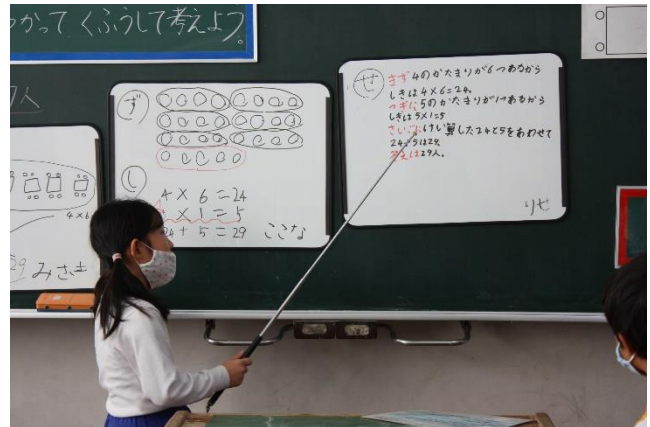 かって くふうして考えよう。
人
4×6
29 みさき
ず
し
4×6=24
×1=5
24+5=29 ここな
せ
まず4のかたまりが6つあるから
しきは4×6=24。
つぎに5のかたまりが1つあるから
しきは5×1=5
さいごにけい算した24と5をあわせて
24+5は29
答えは29人。
りせ